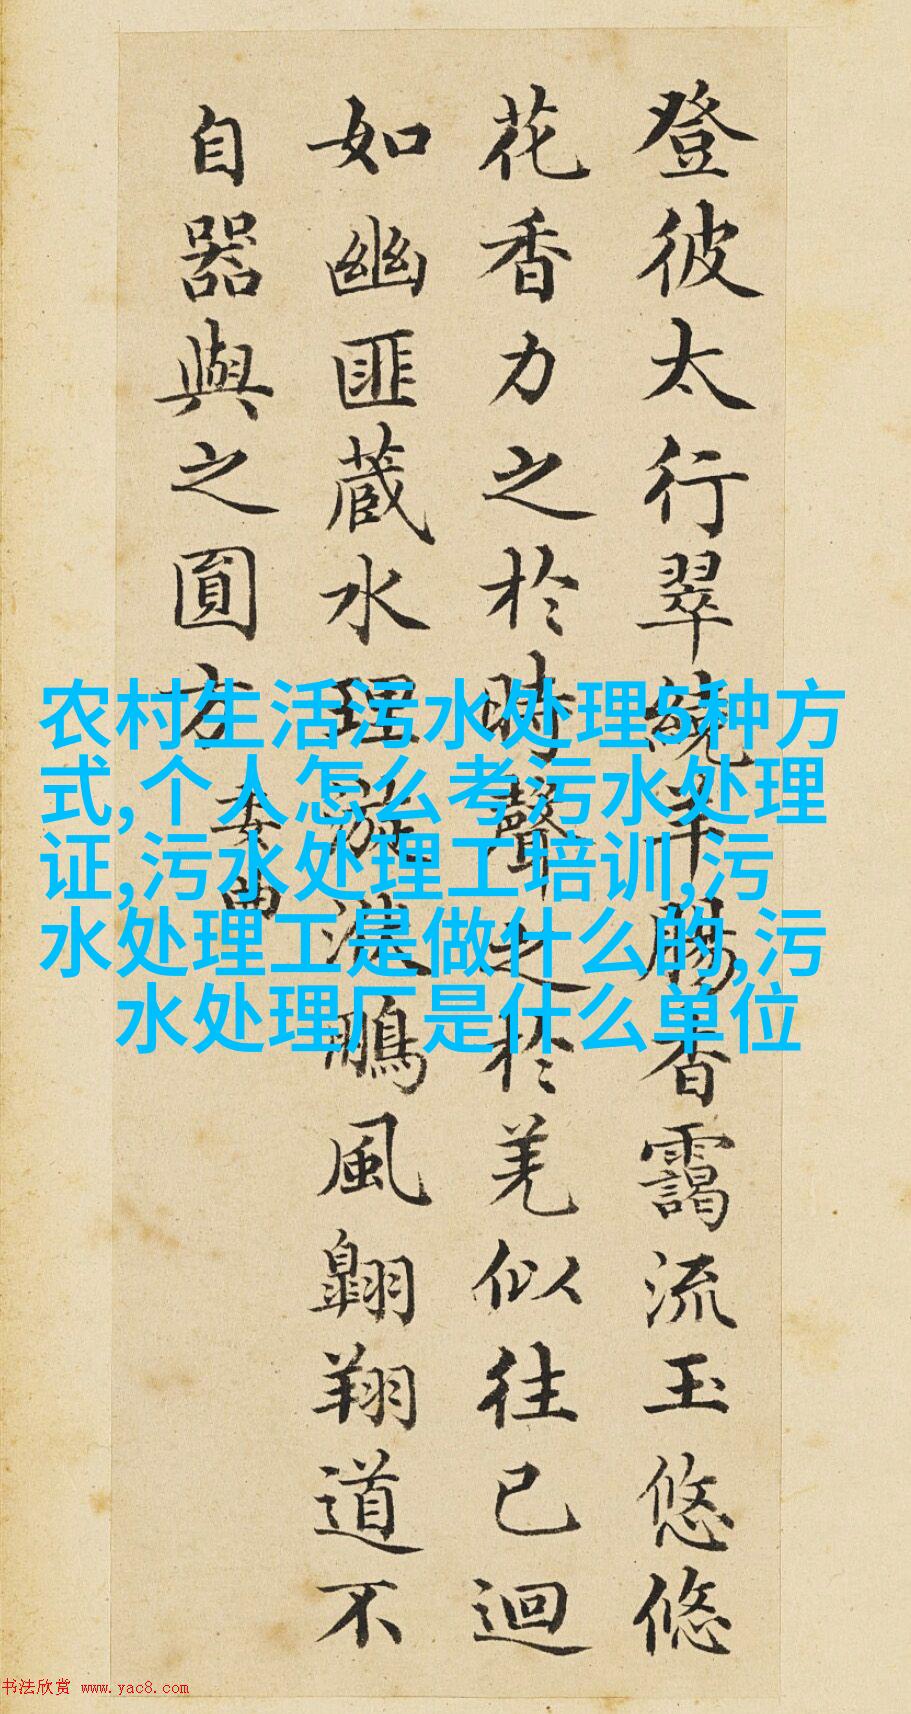 登彼太行翠繞羊腸杳靄流玉悠悠
花香力之於時聲之於羌似往已迴
如幽匪蔵水理漩洑鵬風翺翔道不
自器與之圓方
委曲
农村生活污水处理5种方
式,个人怎么考污水处理
证,污水处理工培训,污
水处理工是做什么的,污
水处理厂是什么单位
书法欣赏 www.yac8.com